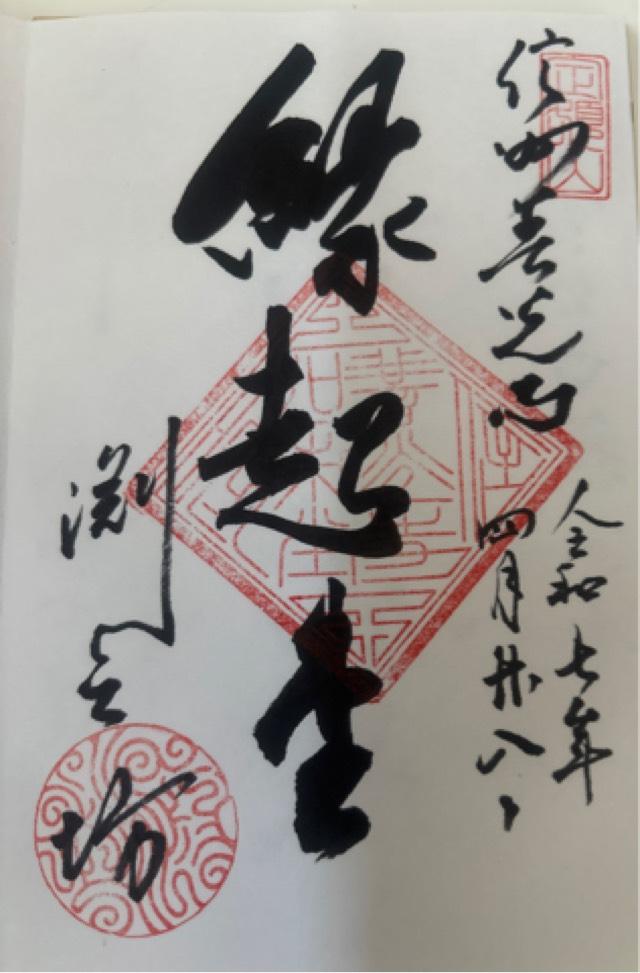 定額山
信州善光寺
令和七年
四月廿八日
縁起堂
渕之坊